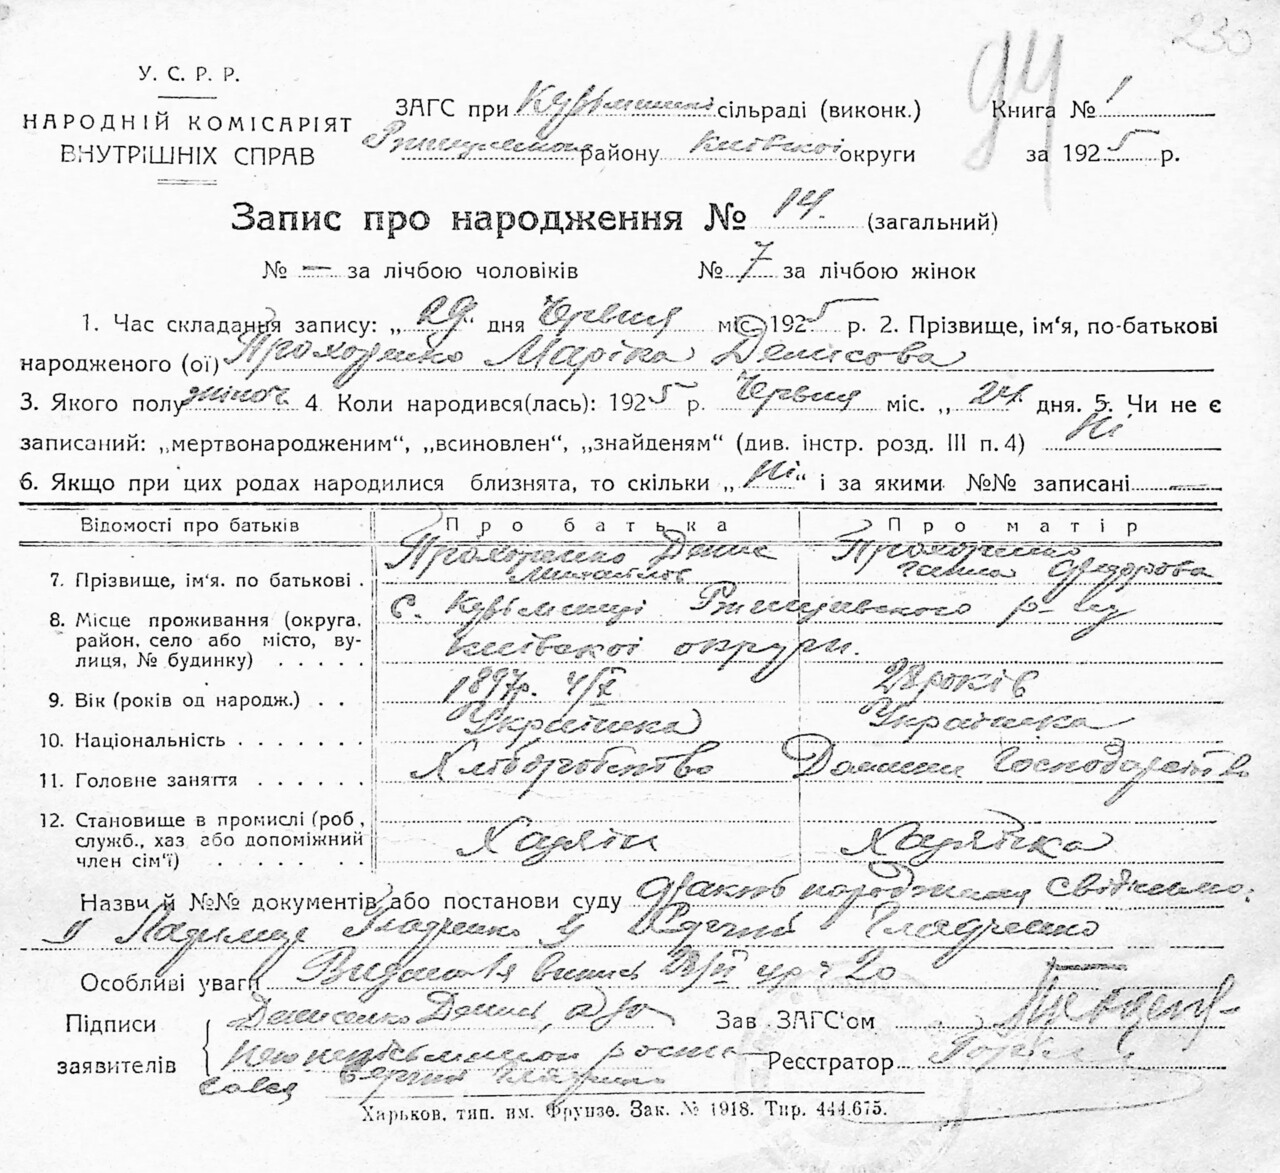 230
94
У. С. Р. Р.
НАРОДНІЙ КОМІСАРІЯТ
ВНУТРІШНІХ СПРАВ
ЗАГС при сільраді (виконк.)
району Київскої округи
Книга № 1
за 1925 р.
Запис про народження № 14. (загальний)
№ — за лічбою чоловіків № 7 за лічбою жінок
1. Час складання запису: „29“ дня Червня міс. 1925 р. 2. Прізвище, ім'я, по-батькові
народженого (ої) Прохоренко Марійка Денисова
3. Якого полу жіноч. 4 Коли народився(лась): 1925 р. Червня міс. „24 дня. 5. Чи не є
записаний: „мертвонародженим“, „всиновлен“, „знайденям“ (див. інстр. розд. III п. 4) Ні
6. Якщо при цих родах народилися близнята, то скільки „Ні“ і за якими №№ записані —
Відомості про батьків Про батька Про матір
7. Прізвище, ім'я. по батькові . Прохоренко Денис Михайлов Прохоренко Ганна Сидорова
8. Місце проживання (округа. район, село або місто, вулиця, № будинку) . . . . . с. р-ну
Київскої округи.
9. Вік (років од народж.) . . 1897р. 28 років
10. Національність . . . . . . . Українка Українка
11. Головне заняття . . . . . . Хліборобство Домашнє Господарство
12. Становище в промислі (роб, служб., хаз або допоміжний член сім'ї) . . . . . . Хазяїн Хазяйка
Назви й №№ документів або постанови суду народження свідчимо:
і Сергій
Особливі уваги
Підписи
заявителів
Денис,
Сергій
Зав ЗАГС'ом
Реєстратор
Харьков, тип. им. Фрунзе. Зак. № 1918. Тир. 444.675.